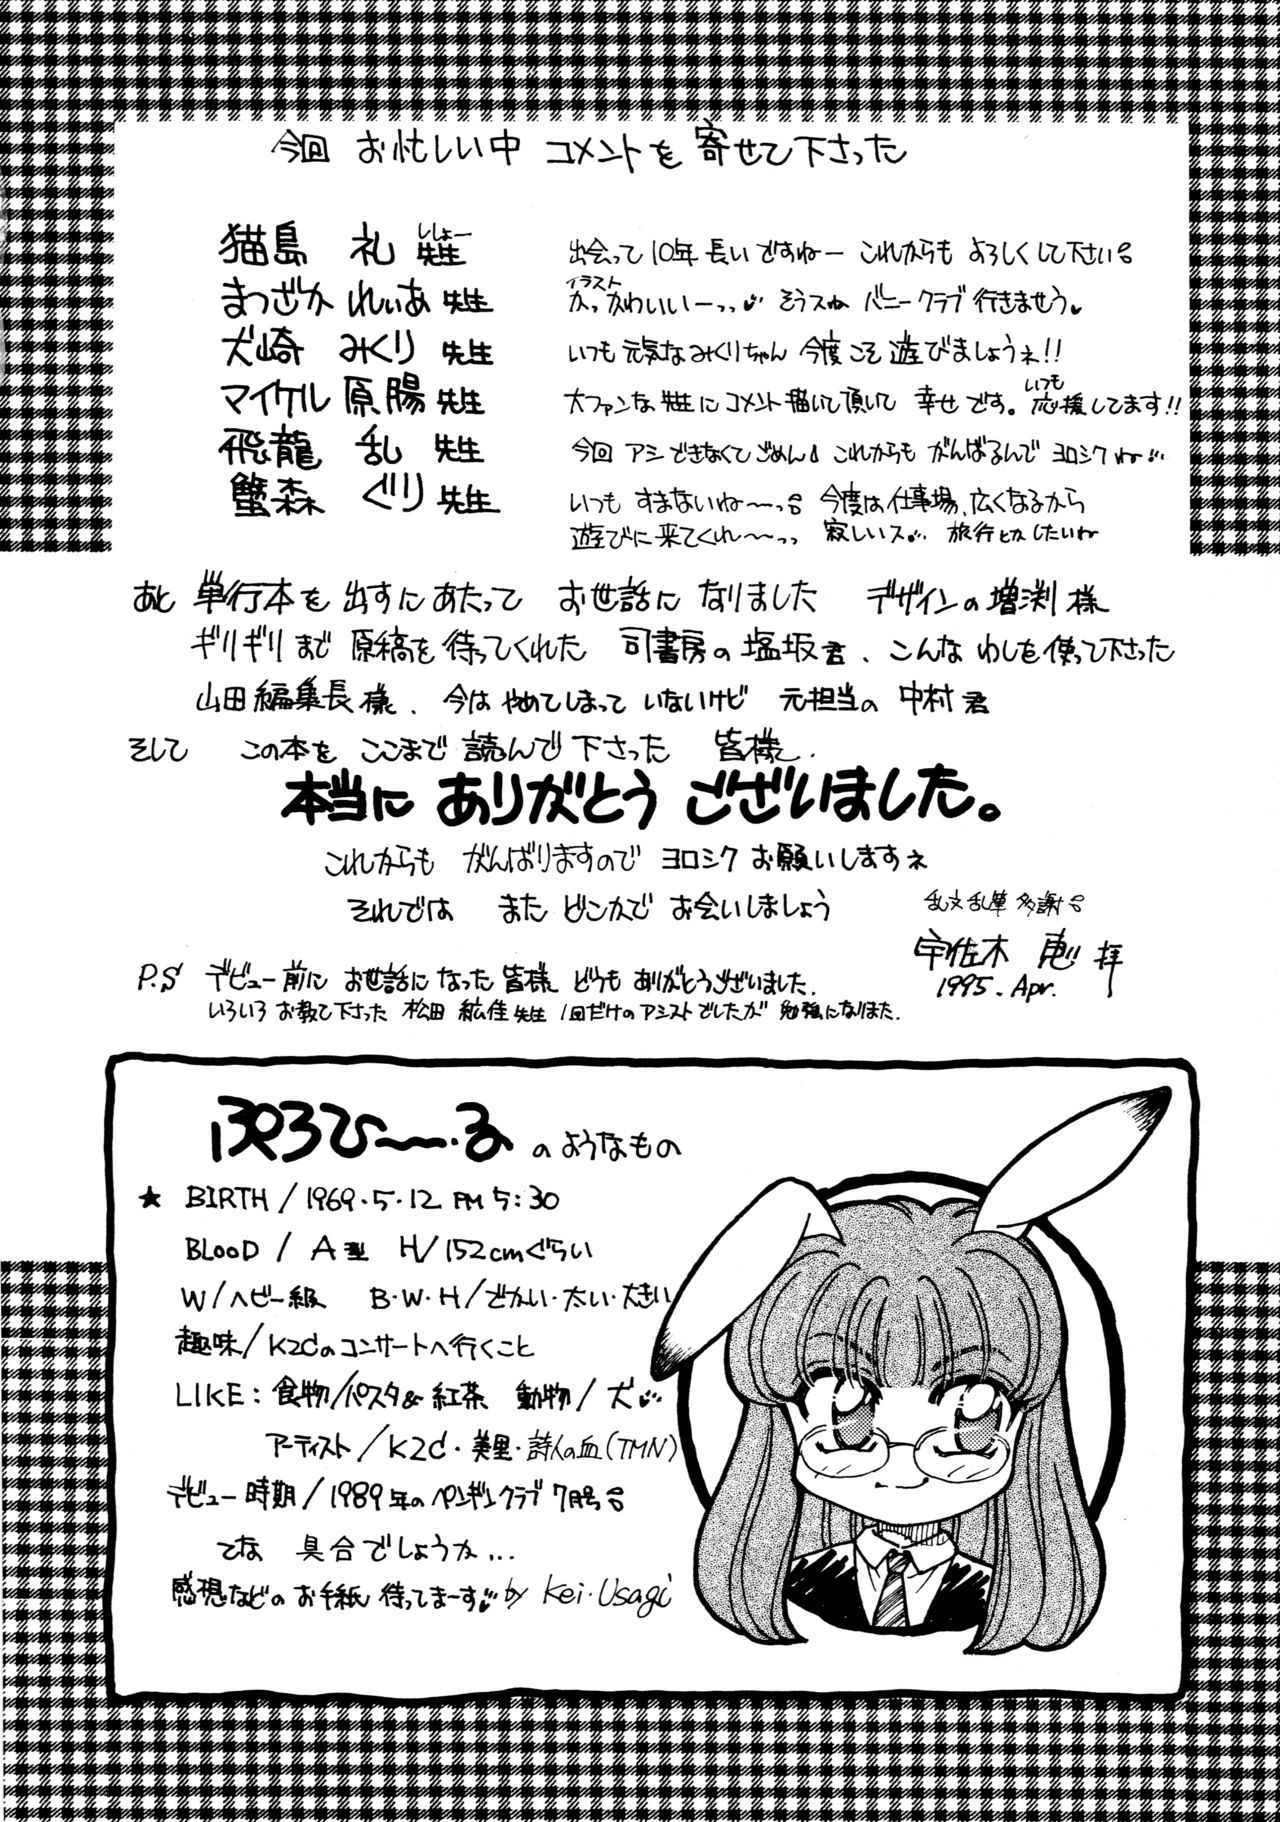 今回 お忙しい中 コメントを 寄せて下さった
猫島 礼 先生 ししょー 出会って10年 長いですねー これからも よろしくして下さい
まつざか れいあ 先生 イラスト かっかわいいーっっ そうスね バニークラブ 行きませう
犬崎 みくり 先生 いつも 元気な みくりちゃん 今度こそ 遊びましょうネ!!
マイケル 原腸 先生 大ファンな 先生に コメント 描いて頂いて 幸せです。 いつも 応援してます!!
飛龍 乱 先生 今回 アシ できなくて ごめん これからも がんばるんで ヨロシクね
蟹森 ぐり 先生 いつも すまないね〜〜っ 今度は 仕事場、広くなるから
遊びに来てくれ〜〜っっ 寂しいス 旅行とかしたいね
あと 単行本を 出すにあたって お世話に なりました デザインの 増渕 様
ギリギリまで 原稿を 待ってくれた 司書房の 塩坂君、こんな わしを使って下さった
山田編集長様、今は やめてしまって いないけど 元担当の 中村君
そして この本を ここまで 読んで 下さった 皆様、
本当に ありがとう ございました。
これからも がんばりますので ヨロシク お願いしますネ
それでは また どこかで お会いしましょう
乱文乱筆 多謝
宇佐木 恵 拝
1995. Apr.
P.S デビュー前に お世話になった 皆様 どうも ありがとうございました.
いろいろ お教え下さった 松田 紘佳 先生 1回だけの アシストでしたが 勉強になりました.
ぷろひ〜〜・る のようなもの
★ BIRTH / 1969・5・12 PM 5:30
BLOOD / A型 H/152cmぐらい
W/ヘビー級 B・W・H/でかい・太い・大きい
趣味/K2Cのコンサートへ行くこと
LIKE: 食物/パスタ& 紅茶 動物/犬
アーティスト/K2C・美里・詩人の血(TMN)
デビュー時期/1989年のペンギンクラブ 7月号
てな 具合でしょうか...
感想などの お手紙 待ってまーす by Kei・Usagi